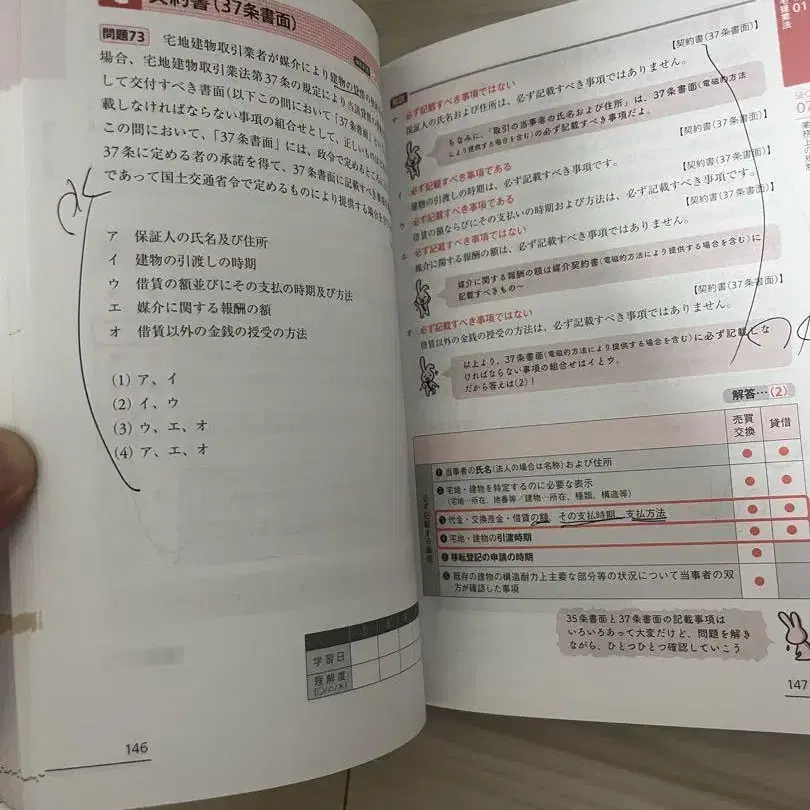 契約書(37条書面)
問題73 宅地建物取引業者が媒介により建物の貸借の
場合、宅地建物取引業法第37条の規定により当該貸借の
して交付すべき書面(以下この問において「37条書面」とい
載しなければならない事項の組合せとして、正しいものは
この問において、「37条書面」には、政令で定めるところに
37条に定める者の承諾を得て、37条書面に記載すべき事
であって国土交通省令で定めるものにより提供する場合を
ア 保証人の氏名及び住所
イ 建物の引渡しの時期
ウ 借賃の額並びにその支払の時期及び方法
エ 媒介に関する報酬の額
オ 借賃以外の金銭の授受の方法
(1) ア、イ
(2) イ、ウ
(3) ウ、エ、オ
(4) ア、エ、オ
学習日
理解度
(○/△/×)
146
宅建業法
01
解説
【契約書(37条書面)】
ア 必ず記載すべき事項ではない
保証人の氏名および住所は、必ず記載すべき事項ではありません。
ちなみに、「取引の当事者の氏名および住所」は、37条書面(電磁的方法
により提供する場合を含む)の必ず記載すべき事項だよ。
【契約書(37条書面)】
イ 必ず記載すべき事項である
建物の引渡しの時期は、必ず記載すべき事項です。
【契約書(37条書面)】
ウ 必ず記載すべき事項である
借賃の額ならびにその支払いの時期および方法は、必ず記載すべき事項です。
【契約書(37条書面)】
エ 必ず記載すべき事項ではない
媒介に関する報酬の額は、必ず記載すべき事項ではありません。
媒介に関する報酬の額は媒介契約書(電磁的方法により提供する場合を含む)に
記載すべきもの〜
【契約書(37条書面)】
オ 必ず記載すべき事項ではない
借賃以外の金銭の授受の方法は、必ず記載すべき事項ではありません。
以上より、37条書面(電磁的方法により提供する場合を含む)に必ず記載しな
ければならない事項の組合せはイとウ。
だから答えは(2)!
解答…(2)
売買
交換
貸借
必ず記載する事項
❶ 当事者の氏名(法人の場合は名称)および住所
❷ 宅地・建物を特定するのに必要な表示
(宅地…所在、地番等/建物…所在、種類、構造等)
❸ 代金・交換差金・借賃の額、その支払時期、支払方法
❹ 宅地・建物の引渡時期
❺ 移転登記の申請の時期
❻ 既存の建物の構造耐力上主要な部分等の状況について当事者の双
方が確認した事項
35条書面と37条書面の記載事項は
いろいろあって大変だけど、問題を解き
ながら、ひとつひとつ確認していこう
147